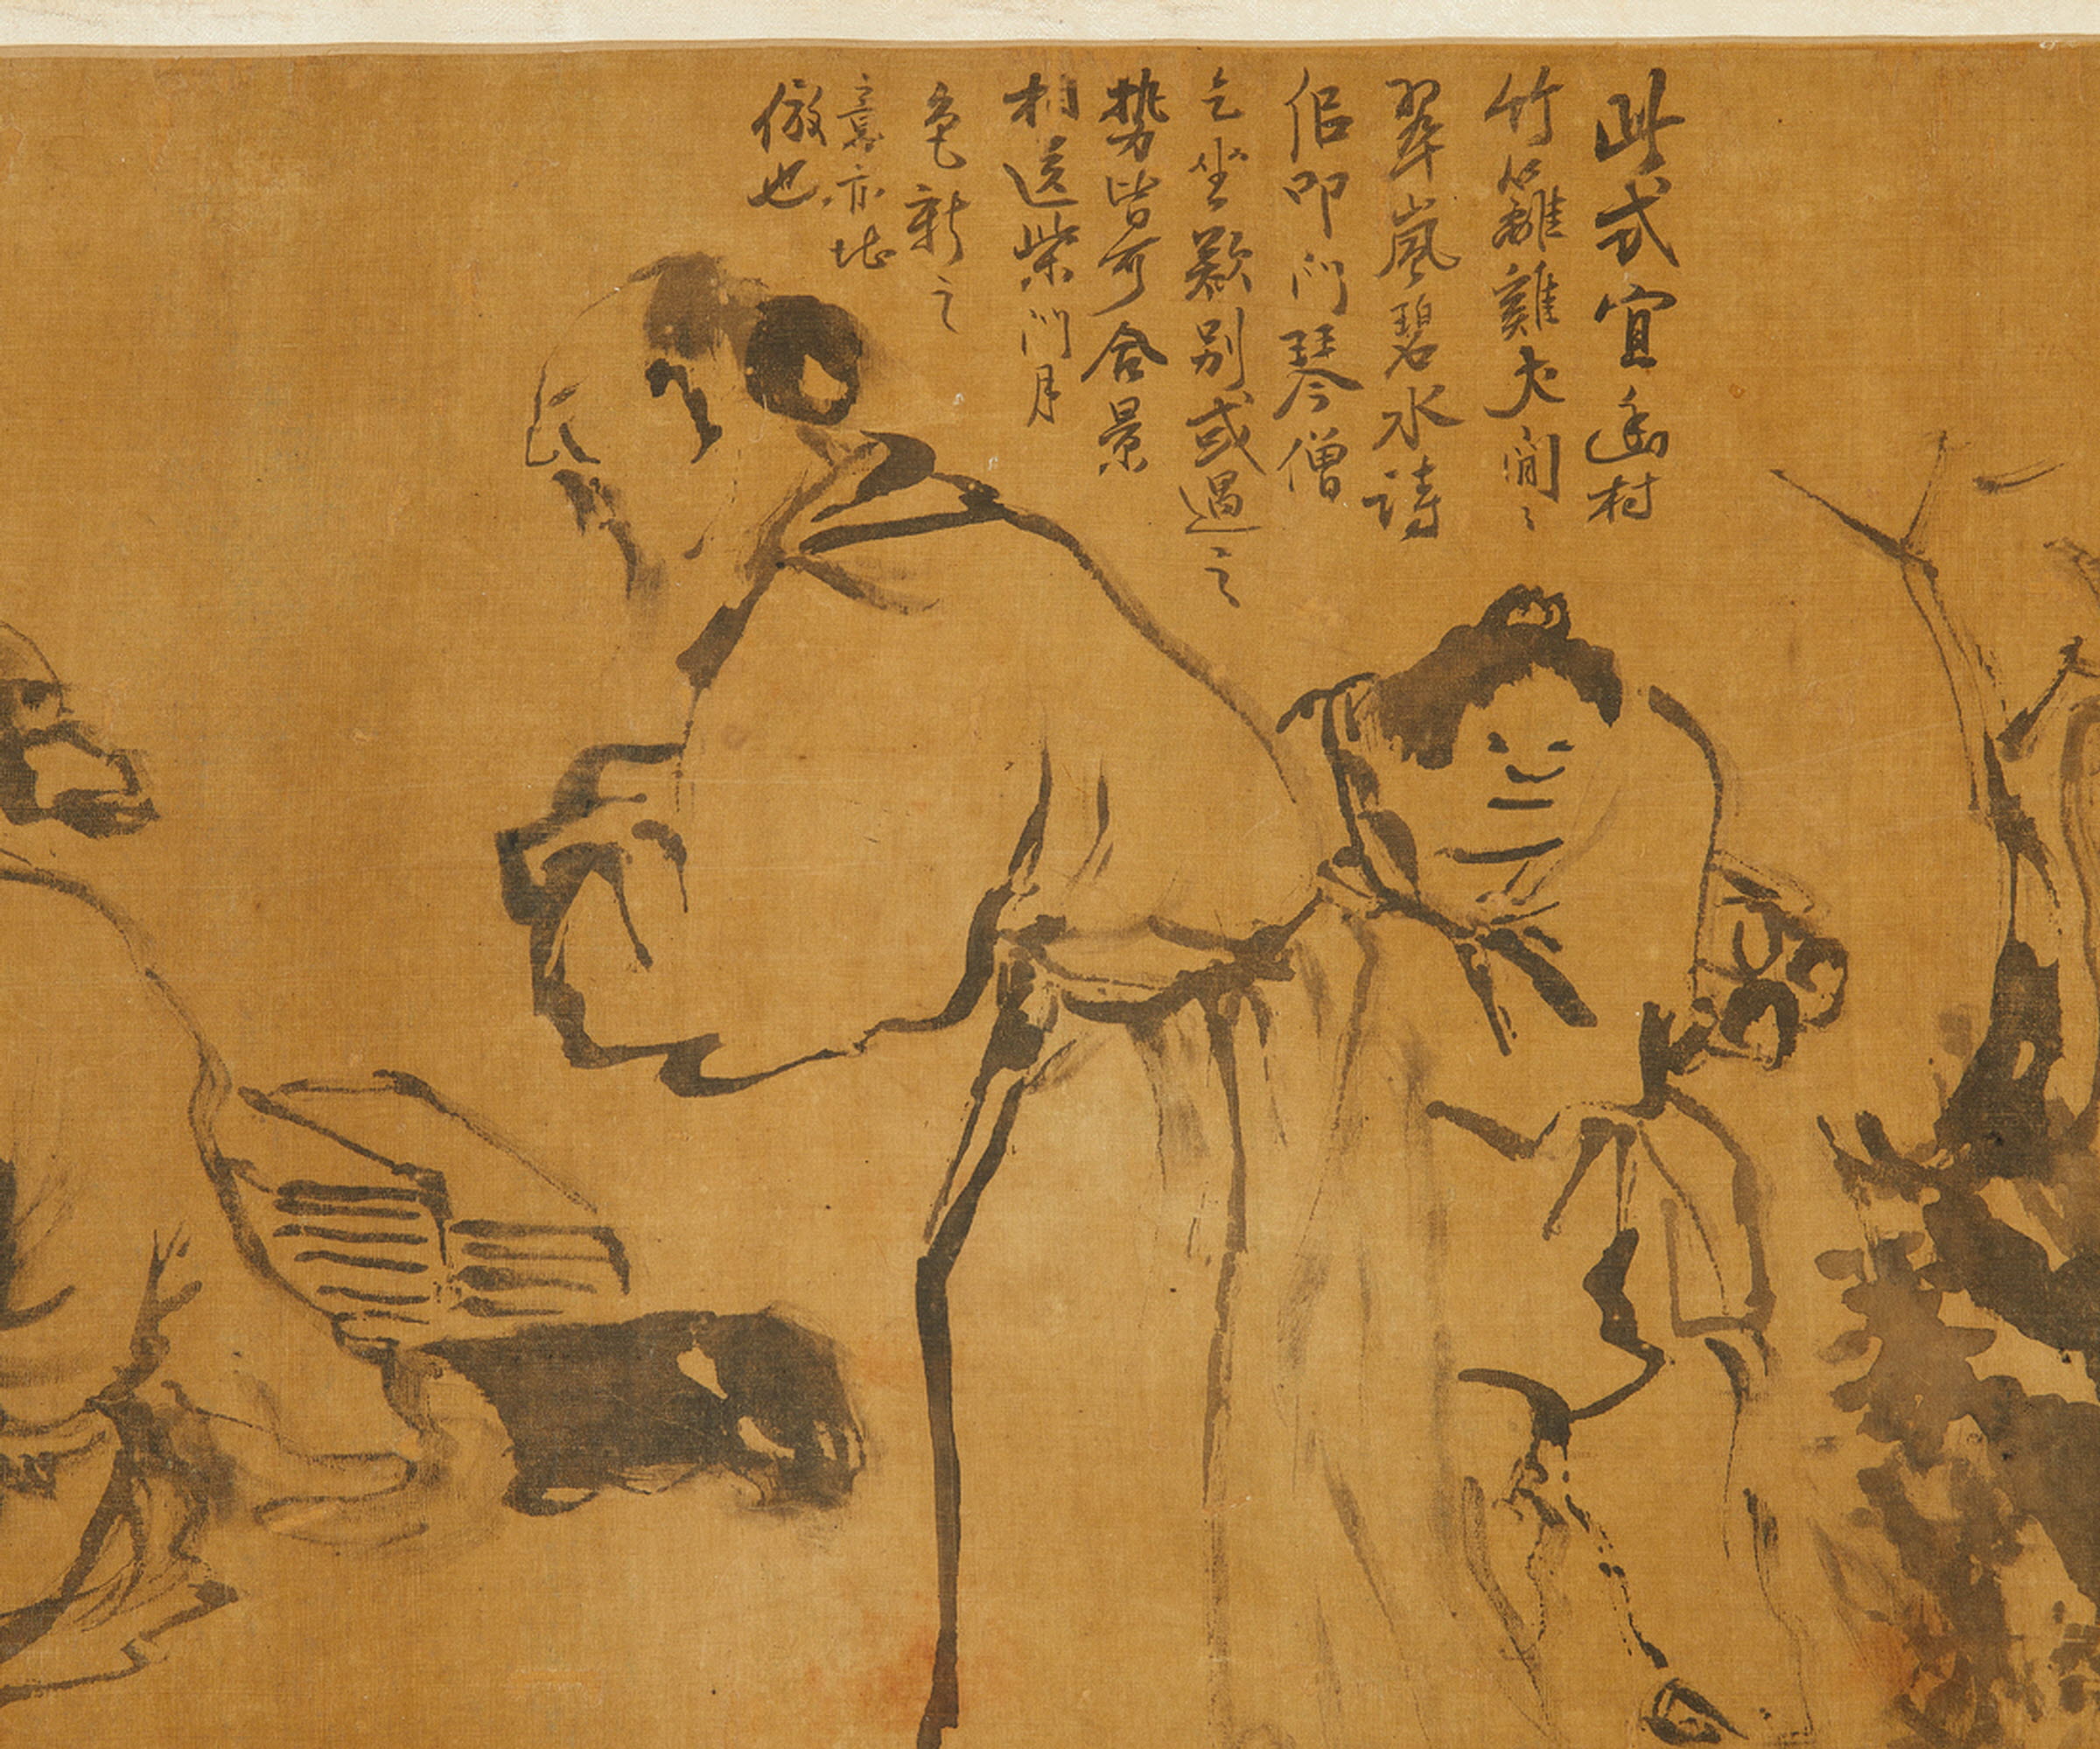 此式宜幽村
竹籬雞犬間〻
翠嵐碧水詩
侶叩門琴僧
乞坐別或過之
勢皆可合景
相送柴門月
色新之
意亦堪
倣也